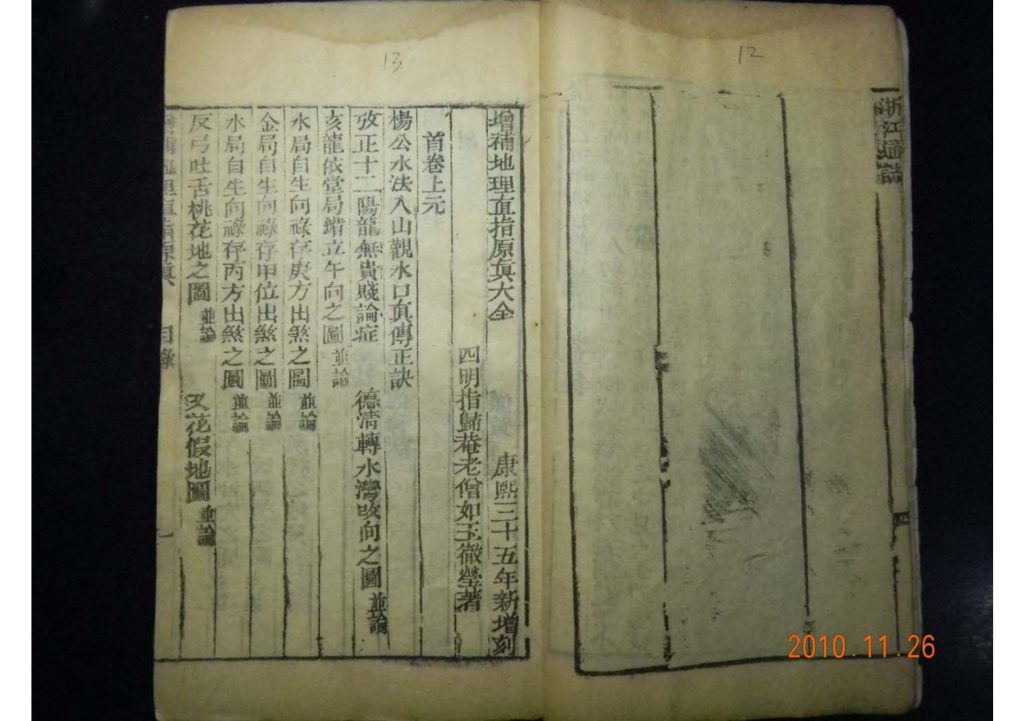 12
浙江通誌
13
增補地理直指原真大全 康熙三十五年新增刻
四明指歸菴老僧如玉徹瑩著
首卷上元
楊公水法入山觀水口真傳正訣
攷正十二陽龍無貴賤論症 德清轉水灣改向之圖並論
亥龍依堂局錯立午向之圖並論
水局自生向祿存庚方出煞之圖並論
金局自生向祿存甲位出煞之圖並論
水局自生向祿存丙方出煞之圖並論
反弓吐舌桃花地之圖並論 叉花假地圖並論
目錄
2010.11.26